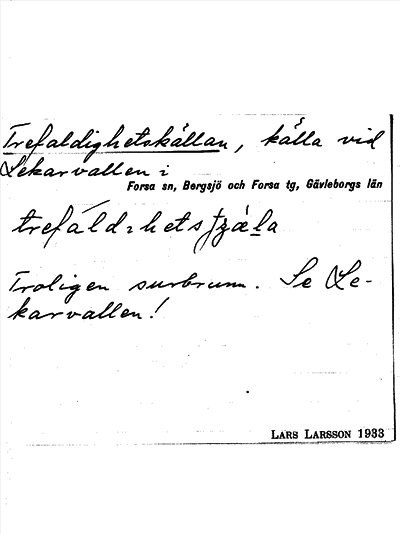 Trefaldighetskällan, källa vid
Lekarvallen i
Forsa sn, Bergsjö och Forsa tg, Gävleborgs län
Troligen surbrunn. Se Le-
karvallen!
LARS LARSSON 1933